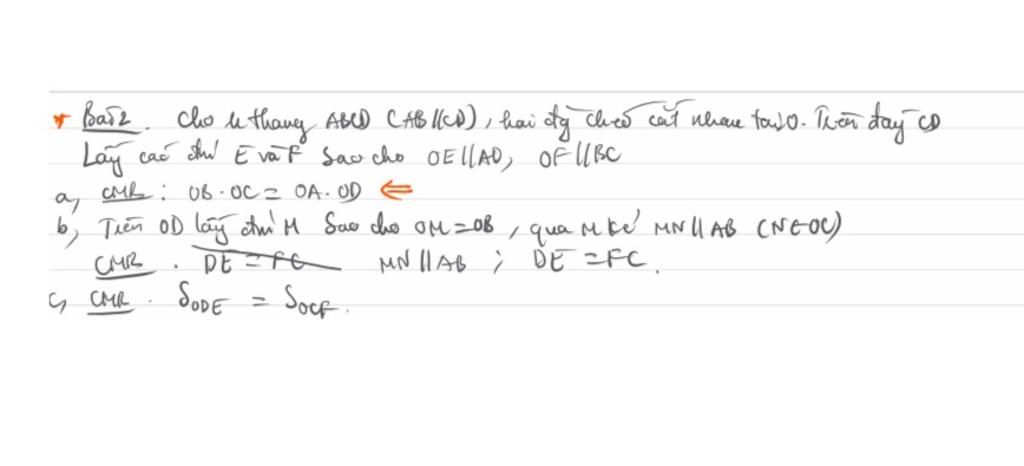 Bài 2. Cho h thang ABCD (AB//CD), hai đg chéo cắt nhau tại O. Trên đáy CD
Lấy các điểm E và F sao cho OE//AD, OF//BC
a, CMR: OB.OC = OA.OD ⇐
b, Trên OD lấy điểm M sao cho OM=OB, qua M kẻ MN//AB (N∈OC)
CMR. DE = FC MN//AB ; DE = FC.
c, CMR. SODE = SOCF.